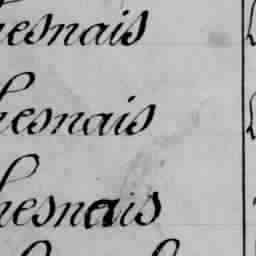 hesnais
hesnais
hesnais